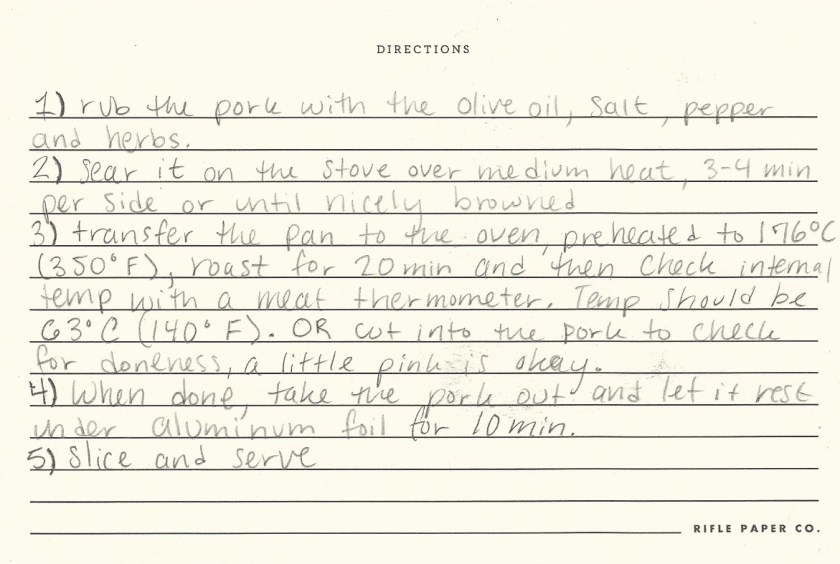 DIRECTIONS
1) rub the pork with the olive oil, salt, pepper
and herbs.
2) Sear it on the stove over medium heat, 3-4 min
per side or until nicely browned
3) transfer the pan to the oven, preheated to 176°C
(350°F), roast for 20 min and then check internal
temp with a meat thermometer. Temp should be
63°C (140°F). OR cut into the pork to check
for doneness, a little pink is okay.
4) When done, take the pork out and let it rest
under aluminum foil for 10 min.
5) Slice and serve
RIFLE PAPER CO.